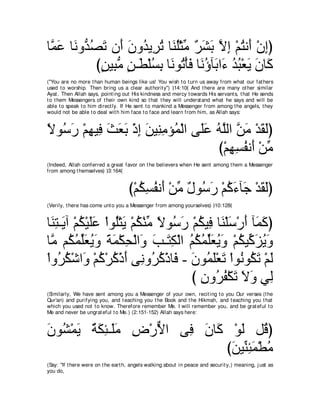 ﴿إِنْ أَنتُمْ إِلاَّ بَشَرٌ مِّثْلُنَا تُرِيدُونَ أَن تَصُدُّونَا عَمَّا
كَانَ يَعْبُدُ ءَابَآؤُنَا فَأْتُونَا بِسُلْطَـنٍ مُّبِينٍ﴾
("You are no more than human beings like us! You wish to turn us away from what our fathers used to worship. Then bring us a clear authority") (14:10) And there are many other similar
Ayat. Then Allah says, pointing out His kindness and mercy towards His servants, that He sends
to them Messengers of their own kind so that they will understand what he says and will be
able to speak to him directly. If He sent to mankind a Messenger from among the angels, they
would not be able to deal with him face to face and learn from him, as Allah says:
﴿لَقَدْ مَنَّ اللَّهُ عَلَى الْمُؤمِنِينَ إِذْ بَعَثَ فِيهِمْ رَسُولاً
مِّنْ أَنفُسِهِمْ﴾
(Indeed, Allah conferred a great favor on the believers when He sent among them a Messenger
from among themselves) (3:164(
﴿لَقَدْ جَآءَكُمْ رَسُولٌ مِّنْ أَنفُسِكُمْ﴾
(Verily, there has come unto you a Messenger from among yourselves) (10:128(
﴿كَمَآ أَرْسَلْنَا فِيكُمْ رَسُولاً مِّنْكُمْ يَتْلُواْ عَلَيْكُمْ آيَـتِنَا
وَيُزَكِّيكُمْ وَيُعَلِّمُكُمُ الْكِتَـبَ وَالْحِكْمَةَ وَيُعَلِّمُكُم مَّا
لَمْ تَكُونُواْ تَعْلَمُونَ - فَاذْكُرُونِى أَذْكُرْكُمْ وَاشْكُرُواْ
لِي وَلاَ تَكْفُرُونِ ﴾
(Similarly, We have sent among you a Messenger of your own, reciting to you Our verses (the
Qur'an) and purifying you, and teaching you the Book and the Hikmah, and teaching you that
which you used not to know. Therefore remember Me. I will remember you, and be grateful to
Me and never be ungrateful to Me.) (2:151-152) Allah says here:
﴿قُل لَوْ كَانَ فِى الاٌّرْضِ مَلَـئِكَةٌ يَمْشُونَ
مُطْمَئِنِّينَ﴾
(Say: "If there were on the earth, angels walking about in peace and security,) meaning, just as
you do,